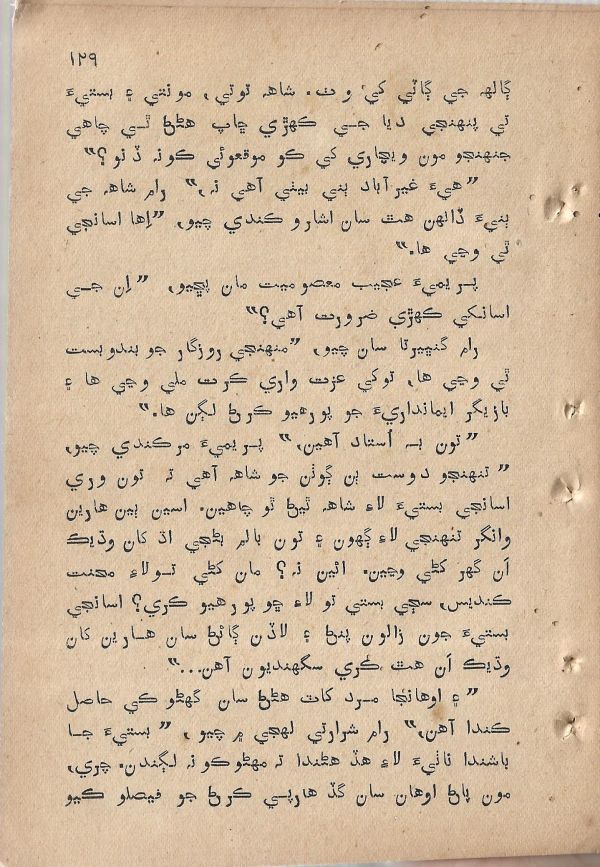 ١٢٩
ڳالهہ جي ڳاڻي کي وٺ. شاهہ توتي، مونتي ۽ بستيءَ
تي پنهنجي دٻا جي ڪهڙي ڇاپ هڻڻ ٿي چاهي
جنهنجو مون ويچاري کي ڪو موقعوئي ڪونہ ڏنو؟”
“هيءَ غيرآباد ٻني بيٺي آهي نہ،” رام شاهہ جي
ٻنيءَ ڏانهن هٿ سان اشارو ڪندي چيو، “اِها اسانجي
ٿي وڃي ها.”
پريميءَ عجيب معصوميت مان پڇيو، “اِن جي
اسانکي ڪهڙي ضرورت آهي؟”
رام گنڀيرتا سان چيو، “منهنجي روزگار جو بندوبست
ٿي وڃي ها، توکي عزت واري ڪرت ملي وڃي ها ۽
بازيگر ايمانداريءَ جو پورهيو ڪرڻ لڳن ها.”
“تون بہ اُستاد آهين،” پريميءَ مرڪندي چيو،
“تنهنجو دوست ٻن ڳوٺن جو شاهہ آهي تہ تون وري
اسانجي بستيءَ لاءِ شاهہ ٿيڻ ٿو چاهين. اسين ٻين هارين
وانگر تنهنجي لاءِ ڳهون ۽ تون بالم بڻجي اڌ کان وڌيڪ
اَن گهر کڻي وڃين. ائين نہ؟ مان کڻي تولاءِ محنت
ڪنديس، سڄي بستي تو لاءِ ڇو پورهيو ڪري؟ اسانجي
بستيءَ جون زالون پنڻ ۽ لاڏن ڳائڻ سان هارين کان
وڌيڪ اَن هٿ ڪري سگهنديون آهن...”
“۽ اوهانجا مرد کاٽ هڻڻ سان گهڻو ڪي حاصل
ڪندا آهن،” رام شرارتي لهجي ۾ چيو، “بستيءَ جا
باشندا ناٺيءَ لاءِ هڏ هڻندا تہ مهڻوڪونہ لڳندن. چري،
مون پاڻ اوهان سان گڏ هارپي ڪرڻ جو فيصلو ڪيو